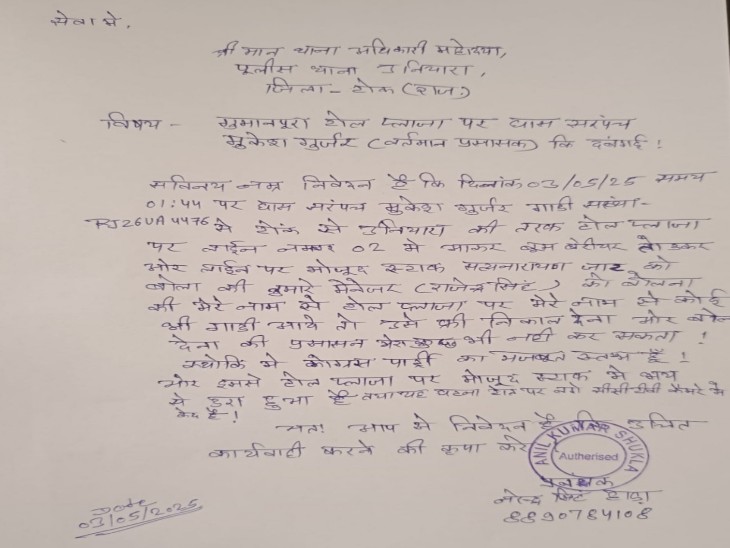 सेवा मे,
श्री मान थाना अधिकारी महोदया,
पूलीस थाना उनियारा,
जिला - टोंक (राज.)
विषय - गुमानपुरा टोल प्लाजा पर घास सरंपच
मुकेश गुर्जर (वर्तमान प्रसासक) कि दबंगई !
सविनय नम्र निवेदन है कि दिनांक 03/05/25 समय
01:44 पर घास सरंपच मुकेश गुर्जर गाडी सख्या-
RJ26UA4476 से टोंक से उनियारा की तरफ टोल प्लाजा
पर लाईन नम्बर 02 मे आकर बुम बेरीयर तोडकर
ओर लाईन पर मोजूद स्टाफ सत्यनारायण जाट को
बोला की तुमारे मेनेजर (राजेन्द्र सिंह) को बोलना
की मेरे नाम से टोल प्लाजा पर मेरे नाम से कोई
भी गाडी आये तो उसे फ्री निकाल देना ओर बोल
देना की प्रसासन मेरा कुछ भी नही कर सकता !
क्योकि मे कोग्रस पार्टी का मजबूत स्तम्भ हूँ !
ओर इससे टोल प्लाजा पर मोजूद स्टाफ मे भय
से डरा हुआ है तथा यह घटना टोल पर लगे सीसीटीवी कैमरे मे
केद है !
अतः आप से निवेदन है कि उचित
कार्यवाही करने की कृपा करे
ANIL KUMAR SHUKLA
Autherised
प्रबंधक
नरेन्द्र सिंह हाड़ा
8890784108
Date
03/05/2025